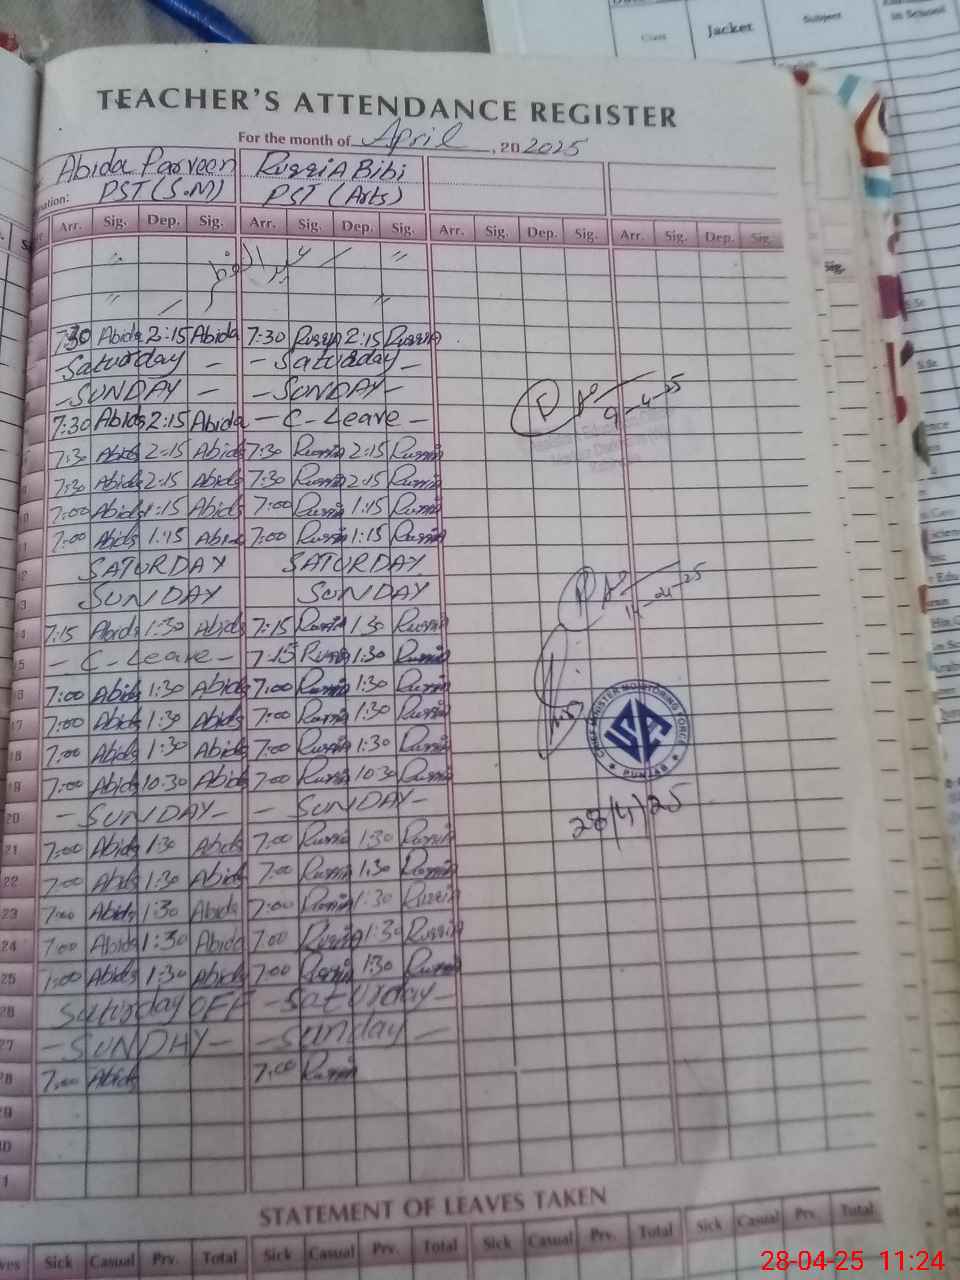 Class Jacket Subject in School
TEACHER'S ATTENDANCE REGISTER
For the month of April, 2025
Abida Parveen RuqqiA Bibi
nation: PST (S.M) PST (Arts)
Arr. Sig. Dep. Sig. Arr. Sig. Dep. Sig. Arr. Sig. Dep. Sig. Arr. Sig. Dep. Sig.
7:30 Abida 2:15 Abida 7:30 Ruqqia 2:15 Ruqqia
- Saturday - - Saturday -
- SUNDAY - - SUNDAY -
7:30 Abida 2:15 Abida - C-Leave - 9-4-25
7:30 Abida 2:15 Abida 7:30 Ruqqia 2:15 Ruqqia
7:30 Abida 2:15 Abida 7:30 Ruqqia 2:15 Ruqqia
7:00 Abida 1:15 Abida 7:00 Ruqqia 1:15 Ruqqia
7:00 Abida 1:15 Abida 7:00 Ruqqia 1:15 Ruqqia
SATURDAY SATURDAY
SUNDAY SUNDAY
7:15 Abida 1:30 Abida 7:15 Ruqqia 1:30 Ruqqia
- C-Leave - 7:15 Ruqqia 1:30 Ruqqia
16 7:00 Abida 1:30 Abida 7:00 Ruqqia 1:30 Ruqqia
17 7:00 Abida 1:30 Abida 7:00 Ruqqia 1:30 Ruqqia
18 7:00 Abida 1:30 Abida 7:00 Ruqqia 1:30 Ruqqia
19 7:00 Abida 10:30 Abida 7:00 Ruqqia 10:30 Ruqqia
CHIEF MINISTER MONITORING FORCE
PUNJAB
20 - SUNDAY - - SUNDAY -
28/4/25
21 7:00 Abida 1:30 Abida 7:00 Ruqqia 1:30 Ruqqia
22 7:00 Abida 1:30 Abida 7:00 Ruqqia 1:30 Ruqqia
23 7:00 Abida 1:30 Abida 7:00 Ruqqia 1:30 Ruqqia
24 7:00 Abida 1:30 Abida 7:00 Ruqqia 1:30 Ruqqia
25 7:00 Abida 1:30 Abida 7:00 Ruqqia 1:30 Ruqqia
26 Saturday OFF - Saturday -
27 - SUNDAY - - Sunday -
28 7:00 Abida 7:00 Ruqqia
29
30
31
STATEMENT OF LEAVES TAKEN
Sick Casual Prv. Total Sick Casual Prv. Total Sick Casual Prv. Total Sick Casual Prv. Total
28-04-25 11:24